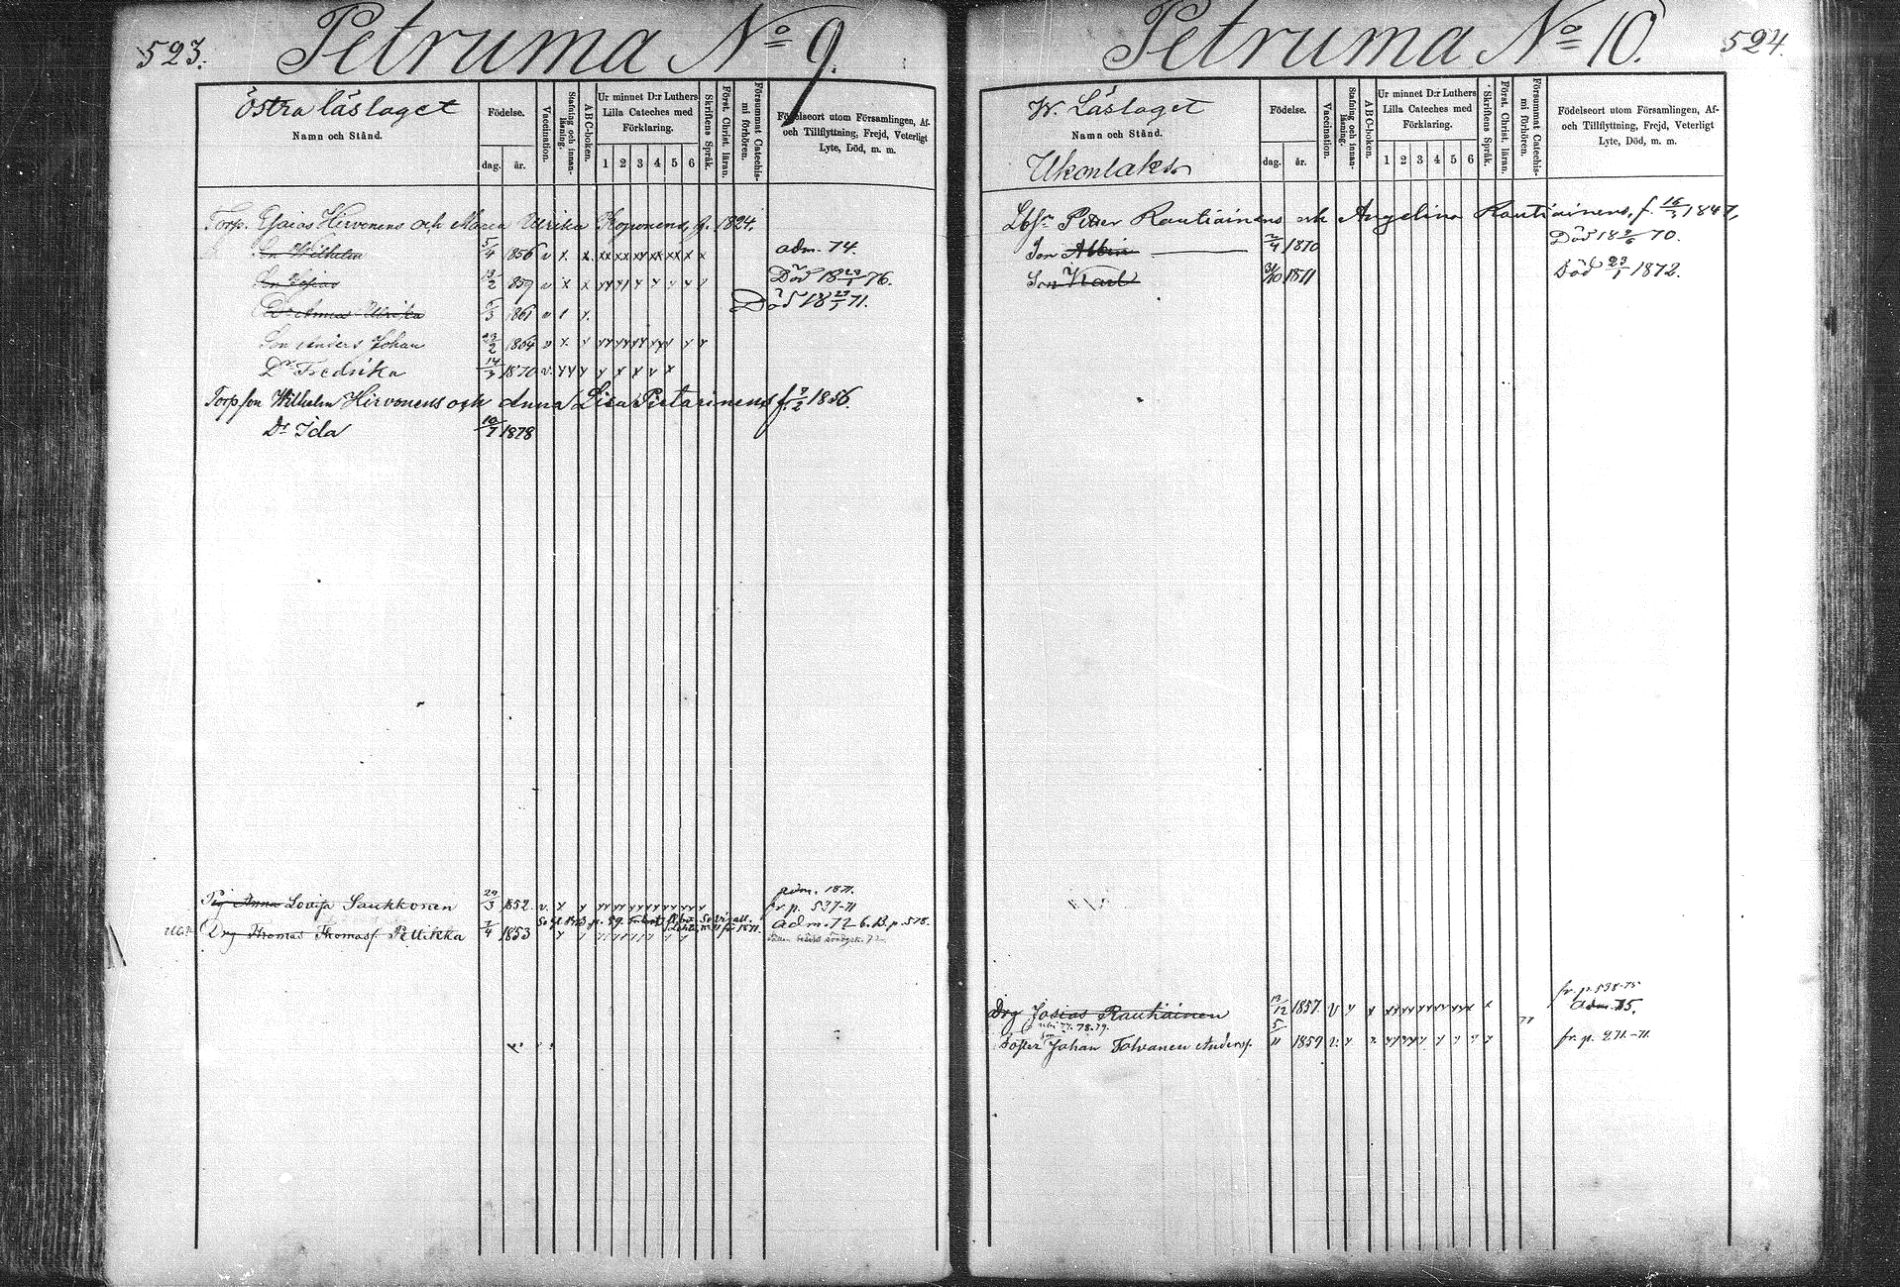 523.
Petruma No 9.
Östra läslaget
Namn och Stånd.
Födelse.
dag.
år.
Vaccination.
Stafning och innanläsning.
ABC-boken.
Ur minnet D:r Luthers
Lilla Cateches med
Förklaring.
1 2 3 4 5 6
Skriftens Språk.
Först. Christ. läran.
Försummat Catechismi förhören.
Födelseort utom Församlingen, Af-
och Tillflyttning, Frejd, Veterligt
Lyte, Död, m. m.
Torp. Esaias Hirvonens och Maria Ulrika Koponens, f. 1824.
Sn Wilhelm 5/4 1856 v x x. xx xx xy xx xx x x adm. 74.
Sn Josias 13/2 1859 v x x Död 18 29/1 76.
Ulrika 1861 v Död 18 71.
Son Anders Johan 23/2 1864 v x
Dr Fredrika 14/3 1870 v.
Torpson Wilhelm Hirvonens och Anna Lisa Pietarinens f. 7/2 1856.
Dr Ida 10/7 1878
Pig Anna Lovisa Saukkonen 29/3 1852. v. adm. 1871.
fr p. 537-71
Drg Thomas Thomasf. Pettikka 7/4 1853 adm. 72 p. 578.
524.
Petruma No 10.
W. Läslaget
Namn och Stånd.
Ukonlaks
Födelse.
dag.
år.
Vaccination.
Stafning och innanläsning.
ABC-boken.
Ur minnet D:r Luthers
Lilla Cateches med
Förklaring.
1 2 3 4 5 6
Skriftens Språk.
Först. Christ. läran.
Försummat Catechismi förhören.
Födelseort utom Församlingen, Af-
och Tillflyttning, Frejd, Veterligt
Lyte, Död, m. m.
Petter Rautiainens och Angelina Rautiainens, f. 16/3 1847.
Son Albin 2/4 1870 Död 18 70.
Son Karl 31/10 1871 Död 23/1 1872.
fr. p. 535-75
Drg Josias Rautiainen 13/12 1857. v adm. 75.
77. 78. 79.
Foster Johan Tolvanen Andersf. 5/11 1859 v. fr. p. 271-71.